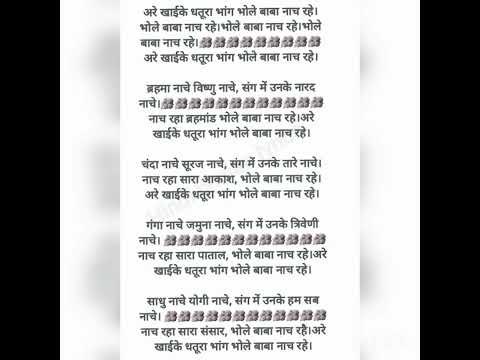 अरे खाईके धतूरा भांग भोले बाबा नाच रहे।
भोले बाबा नाच रहे।भोले बाबा नाच रहे।भोले
बाबा नाच रहे।
अरे खाईके धतूरा भांग भोले बाबा नाच रहे।
ब्रहमा नाचे विष्णु नाचे, संग में उनके नारद
नाचे।
नाच रहा ब्रहमांड भोले बाबा नाच रहे।अरे
खाईके धतूरा भांग भोले बाबा नाच रहे।
चंदा नाचे सूरज नाचे, संग में उनके तारे नाचे।
नाच रहा सारा आकाश, भोले बाबा नाच रहे।
अरे खाईके धतूरा भांग भोले बाबा नाच रहे।
गंगा नाचे जमुना नाचे, संग में उनके त्रिवेणी
नाचे।
नाच रहा सारा पाताल, भोले बाबा नाच रहे।अरे
खाईके धतूरा भांग भोले बाबा नाच रहे।
साधु नाचे योगी नाचे, संग में उनके हम सब
नाचे।
नाच रहा सारा संसार, भोले बाबा नाच रहै।अरे
खाईके धतूरा भांग भोले बाबा नाच रहे।